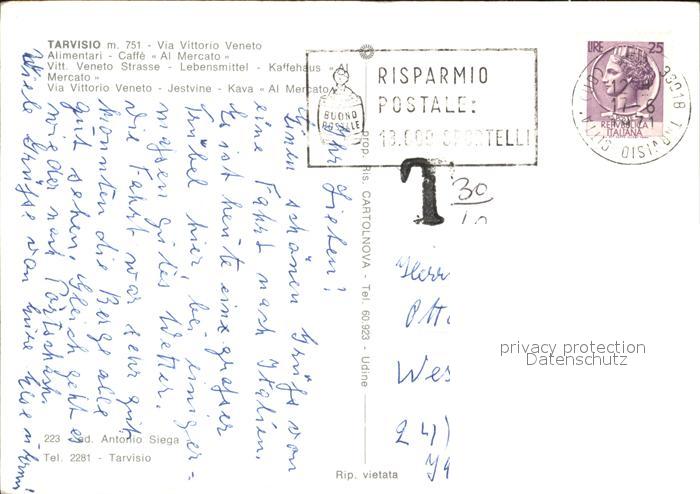 TARVISIO m. 751 - Via Vittorio Veneto
Alimentari - Caffè « Al Mercato »
Vitt. Veneto Strasse - Lebensmittel - Kaffehaus « Al
Mercato »
Via Vittorio Veneto - Jestvine - Kava « Al Mercato
RISPARMIO
POSTALE:
13.600 SPORTELLI
BUONO
POSTALE
LIRE 25
REPVBBLICA
ITALIANA
33018 TARVISIO CITTA
T 30
Ihr Lieben!
Einen schönen Gruß von
eine Fahrt nach Italien.
Es ist heute ein grosser
Trubel hier, bei einiger=
massen gutes Wetter.
Die Fahrt war sehr gut,
konnten die Berge alle
gut sehen. Gleich geht es
wieder nach Pörtschach.
Viele Grüsse von
prop. Ris. CARTOLNOVA - Tel. 60.923 - Udine
Herr
Wes
privacy protection
Datenschutz
223 Ed. Antonio Siega
Tel. 2281 - Tarvisio
Rip. vietata